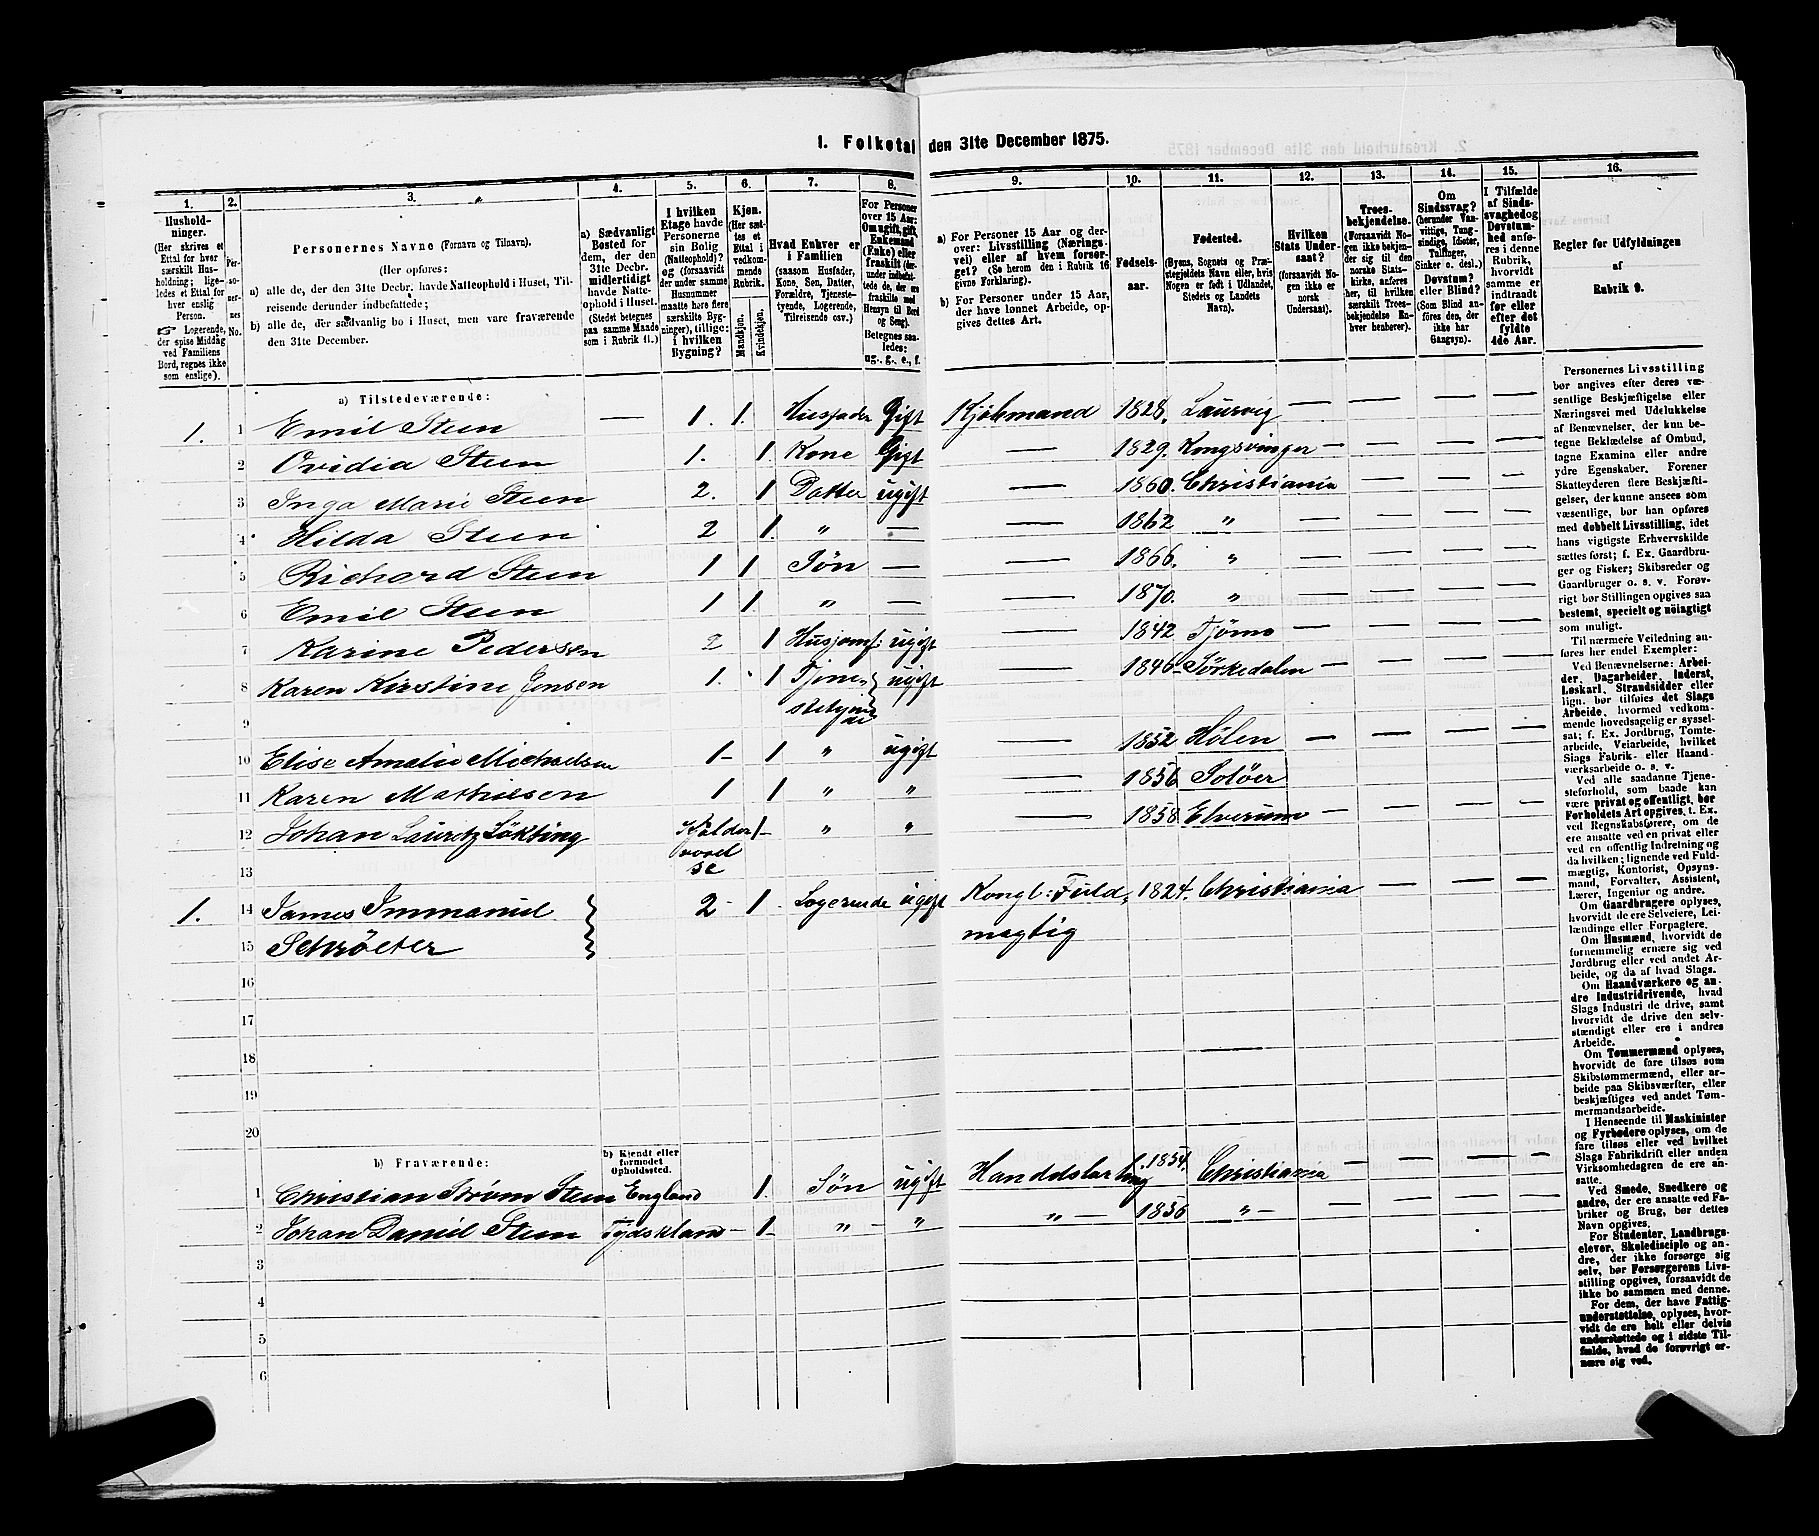 1. Folketal den 31te December 1875.
1. 2. 3. 4. 5. 6. 7. 8. 9. 10. 11. 12. 13. 14. 15. 16.
Hushold-
ninger.
(Her skrives et
Ettal for hver
særskilt Hus-
holdning; lige-
ledes et Ettal for
hver enslig
Person.
☞ Logerende,
der spise Middag
ved Familiens
Bord, regnes ikke
som enslige).
Per-
so-
ner-
nes
No.
Personernes Navne (Fornavn og Tilnavn).
(Her opføres:
a) alle de, der den 31te Decbr. havde Natteophold i Huset, Til-
reisende derunder indbefattede;
b) alle de, der sædvanlig bo i Huset, men vare fraværende
den 31te December.
a) Sædvanligt
Bosted for
dem, der den
31te Decbr.
midlertidigt
havde Natte-
ophold i Huset.
(Stedet betegnes
paa samme Maade
som i Rubrik 11.)
I hvilken
Etage havde
Personerne
sin Bolig
(Natteophold)?
og (forsaavidt
der under samme
Husnummer
maatte høre flere
særskilte Byg-
ninger), tillige:
i hvilken
Bygning?
Kjøn.
(Her sæt-
tes et
Ettal i
vedkom-
mende
Rubrik.
Mandkjøn.
Kvindekjøn.
Hvad Enhver er
i Familien
(saasom Husfader,
Kone, Søn, Datter,
Forældre, Tjeneste-
tyende, Logerende,
Tilreisende osv.)
For Personer
over 15 Aar:
Om ugift, gift,
Enkemand
(Enke) eller
fraskilt (der-
under indbefat-
tede de, der ere
fraskilte med
Hensyn til Bord
og Seng).
Betegnes saa-
ledes:
ug., g., e., f.
a) For Personer 15 Aar og der-
over: Livsstilling (Nærings-
vei) eller af hvem forsør-
get? (Se herom den i Rubrik 16
givne Forklaring).
b) For Personer under 15 Aar,
der have lønnet Arbeide, op-
gives dettes Art.
Fødsels-
aar.
Fødested.
(Byens, Sognets og Præ-
stegjældets Navn eller, hvis
Nogen er født i Udlandet,
Stedets og Landets
Navn).
Hvilken
Stats Under-
saat?
(forsaavidt No-
gen ikke er
norsk
Undersaat).
Troes-
bekjendelse.
(Forsaavidt No-
gen ikke bekjen-
der sig til den
norske Stats-
kirke, anføres
her, til hvilken
særskilt Troes-
bekjendelse En-
hver henhører).
Om
Sindssvag?
(herunder Van-
vittige, Tung-
sindige, Idioter,
Tullinger,
Sinker o. desl.)
Døvstum?
eller Blind?
(Som Blind an-
føres den, der
ikke har
Gangsyn).
I Tilfælde
af Sinds-
svaghed og
Døvstum-
hed anfø-
res i denne
Rubrik,
hvorvidt
samme er
indtraadt
før eller
efter det
fyldte
4de Aar.
Regler før Udfyldningen
af
Rubrik 9.
a) Tilstedeværende:
1. 1 Emil Steen — 1. 1. Husfader Gift Kjøbmand 1828. Laurvig — — — —
2 Ovidia Steen 1. 1. Kone Gift — 1829. Kongsvinger — — — —
3 Inga Marie Steen 2. 1 Datter ugift — 1860. Christiania — — — —
4 Hilda Steen 2 1. " — — 1862 " — — — —
5 Richard Steen 1 1 Søn — — 1866. " — — — —
6 Emil Steen 1 1. " — — 1870. " — — — —
7 Karine Pedersen 2 1 Husjomf: ugift — 1842 Tjømø — — — —
8 Karen Kirstine Jensen 1. 1 Tjene- ugift — 1846 Sørkedalen — — — —
9 stetyende
10 Elise Amalie Michaelsen 1- 1 " ugift — 1852 Hølen — — — —
11 Karen Mathiesen 1 1 " " — 1856 Soløer
12 Johan Lauritz Søkting Kjelder 1- " " — 1858 Elverum — — — —
13 værel
se
1. 14 James Immanuel 2- 1. Logerende ugift Kongl: Fuld- 1824. Christiania — — — —
15 Schrøeter mægtig
16
17
18
19
20
b) Fraværende:
b) Kjendt eller
formodet
Opholdssted.
1 Christian Strøm Steen England 1. Søn ugift Handelslærling 1854. Christiania — — — —
2 Johan Daniel Steen Tydskland — 1- " — " " — 1856 " — — — — —
3
4
5
6
Personernes Livsstilling
bør angives efter deres væ-
sentlige Beskjæftigelse eller
Næringsvei med Udelukkelse
af Benævnelser, der kun be-
tegne Beklædelse af Ombud,
tagne Examina eller andre
ydre Egenskaber. Forener
Skatteyderen flere Beskjæfti-
gelser, der kunne ansees som
væsentlige, bør han opføres
med dobbelt Livsstilling, idet
hans vigtigste Erhvervskilde
sættes først; f. Ex. Gaardbru-
ger og Fisker; Skibsreder og
Gaardbruger o. s. v. Forøv-
rigt bør Stillingen opgives saa
bestemt, specielt og nøiagtigt
som muligt.
Til nærmere Veiledning an-
føres her endel Exempler:
Ved Benævnelserne: Arbei-
der, Dagarbeider, Inderst,
Løskarl, Strandsidder eller
lign. bør tilføies det Slags
Arbeide, hvormed vedkom-
mende hovedsagelig er syssel-
sat; f. Ex. Jordbrug, Tomte-
arbeide, Veiarbeide, hvilket
Slags Fabrik- eller Haand-
værksarbeide o. s. v.
Ved alle saadanne Tjene-
steforhold, som baade kan
være privat og offentligt, bør
Forholdets Art opgives, t. Ex.
ved Regnskabsførere, om de
ere ansatte ved en privat eller
ved en offentlig Indretning og
da hvilken; lignende ved Fuld-
mægtig, Kontorist, Opsyns-
mand, Forvalter, Assistent,
Lærer, Ingeniør og andre.
Om Gaardbrugere oplyses,
hvorvidt de ere Selveiere, Lei-
lændinge eller Forpagtere.
Om Husmænd, hvorvidt de
fornemmelig ernære sig ved
Jordbrug eller ved andet Ar-
beide, og da af hvad Slags.
Om Haandværkere og an-
dre Industridrivende, hvad
Slags Industri de drive, samt
hvorvidt de drive den selv-
stændigt eller ere i andres
Arbeide.
Om Tømmermænd oplyses,
hvorvidt de fare tilsøs som
Skibstømmermænd, eller ar-
beide paa Skibsværfter, eller
beskjæftiges ved andet Tøm-
mermandsarbeide.
I Henseende til Maskinister
og Fyrbødere oplyses, om de
fare tilsøs eller ved hvilket
Slags Fabrikdrift eller anden
Virksomhedsgren de ere an-
satte.
Ved Smede, Snedkere og
andre, der ere ansatte ved Fa-
briker og Brug, bør dettes
Navn opgives.
For Studenter, Landbrugs-
elever, Skoledisciple og an-
dre, der ikke forsørge sig
selv, bør Forsørgerens Livs-
stilling opgives, forsaavidt de
ikke bo sammen med denne.
For dem, der have Fattig-
understøttelse, oplyses, hvor-
vidt de ere helt eller delvis
understøttede og i sidste Til-
fælde, hvad de forøvrigt er-
nære sig ved.